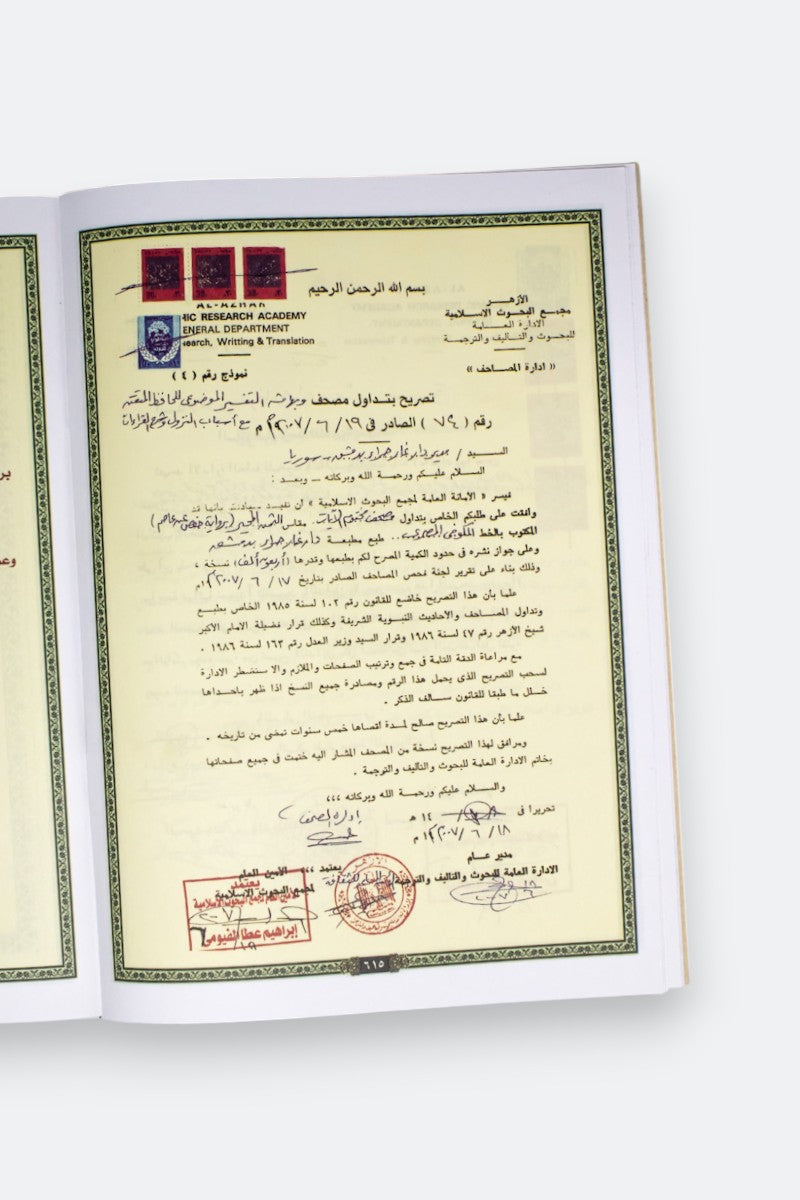 بسم الله الرحمن الرحيم
الأزهر
مجمع البحوث الاسلامية
الادارة العامة
للبحوث والتأليف والترجمة
AL-AZHAR
HIC RESEARCH ACADEMY
ENERAL DEPARTMENT
earch, Writting & Translation
« ادارة المصاحف »
نموذج رقم ( ٤ )
تصريح بتداول مصحف وبهامشه التفسير الموضوعي للحافظ المتقن
رقم ( ٧٤ ) الصادر في ١٩ / ٦ / ٢٠٠٧ م مع أسباب النزول وشرح القراءات
السيد / مدير دار غار حراء بدمشق - سوريا
السلام عليكم ورحمة الله وبركاته – وبعد :
فيسر « الأمانة العامة لمجمع البحوث الاسلامية » أن تفيد سيادتكم بأنها قد
وافقت على طلبكم الخاص بتداول مصحف مختوم الآيات مقاس (برواية حفص عن عاصم)
المكتوب بالخط .. طبع مطبعة دار غار حراء بدمشق
وعلى جواز نشره في حدود الكمية المصرح لكم بطبعها وقدرها (أربعون ألف) نسخة ،
وذلك بناء على تقرير لجنة فحص المصاحف الصادر بتاريخ ١٧ / ٦ / ٢٠٠٧ م
علما بأن هذا التصريح خاضع للقانون رقم ١٠٢ لسنة ١٩٨٥ الخاص بطبع
وتداول المصاحف والأحاديث النبوية الشريفة وكذلك قرار فضيلة الامام الاكبر
شيخ الأزهر رقم ٤٧ لسنة ١٩٨٦ وقرار السيد وزير العدل رقم ١٦٣ لسنة ١٩٨٦ .
مع مراعاة الدقة التامة في جمع وترتيب الصفحات والملازم والا ستضطر الادارة
لسحب التصريح الذى يحمل هذا الرقم ومصادرة جميع النسخ اذا ظهر باحداها
خلل ما طبقا للقانون سالف الذكر .
علما بأن هذا التصريح صالح لمدة أقصاها خمس سنوات تمضى من تاريخه .
ومرافق لهذا التصريح نسخة من المصحف المشار اليه ختمت في جميع صفحاتها
بخاتم الادارة العامة للبحوث والتأليف والترجمة .
والسلام عليكم ورحمة الله وبركاته ،،،
تحريرا في / / ١٤ هـ
١٨ / ٦ / ٢٠٠٧ م
إدارة المصحف
مدير عام
الادارة العامة للبحوث والتأليف والترجمة
يعتمد ،،،
الأمين العام
لمجمع البحوث الاسلامية
يعتمد
الأمين العام لمجمع البحوث الإسلامية
إبراهيم عطا الفيومى
٦١٥